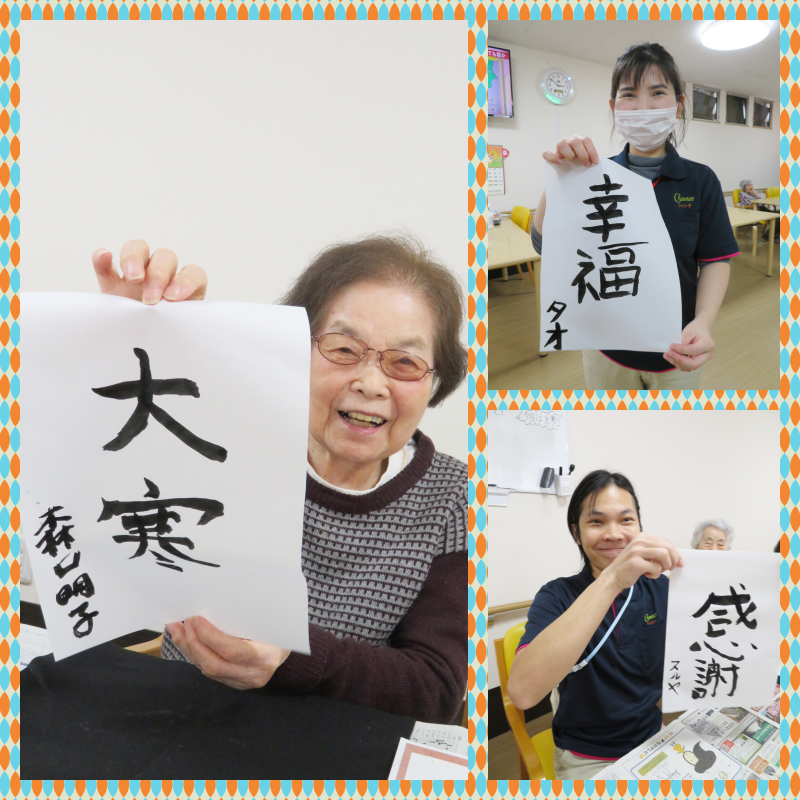 大寒
森山明子
幸福
タオ
感謝
スルヤ